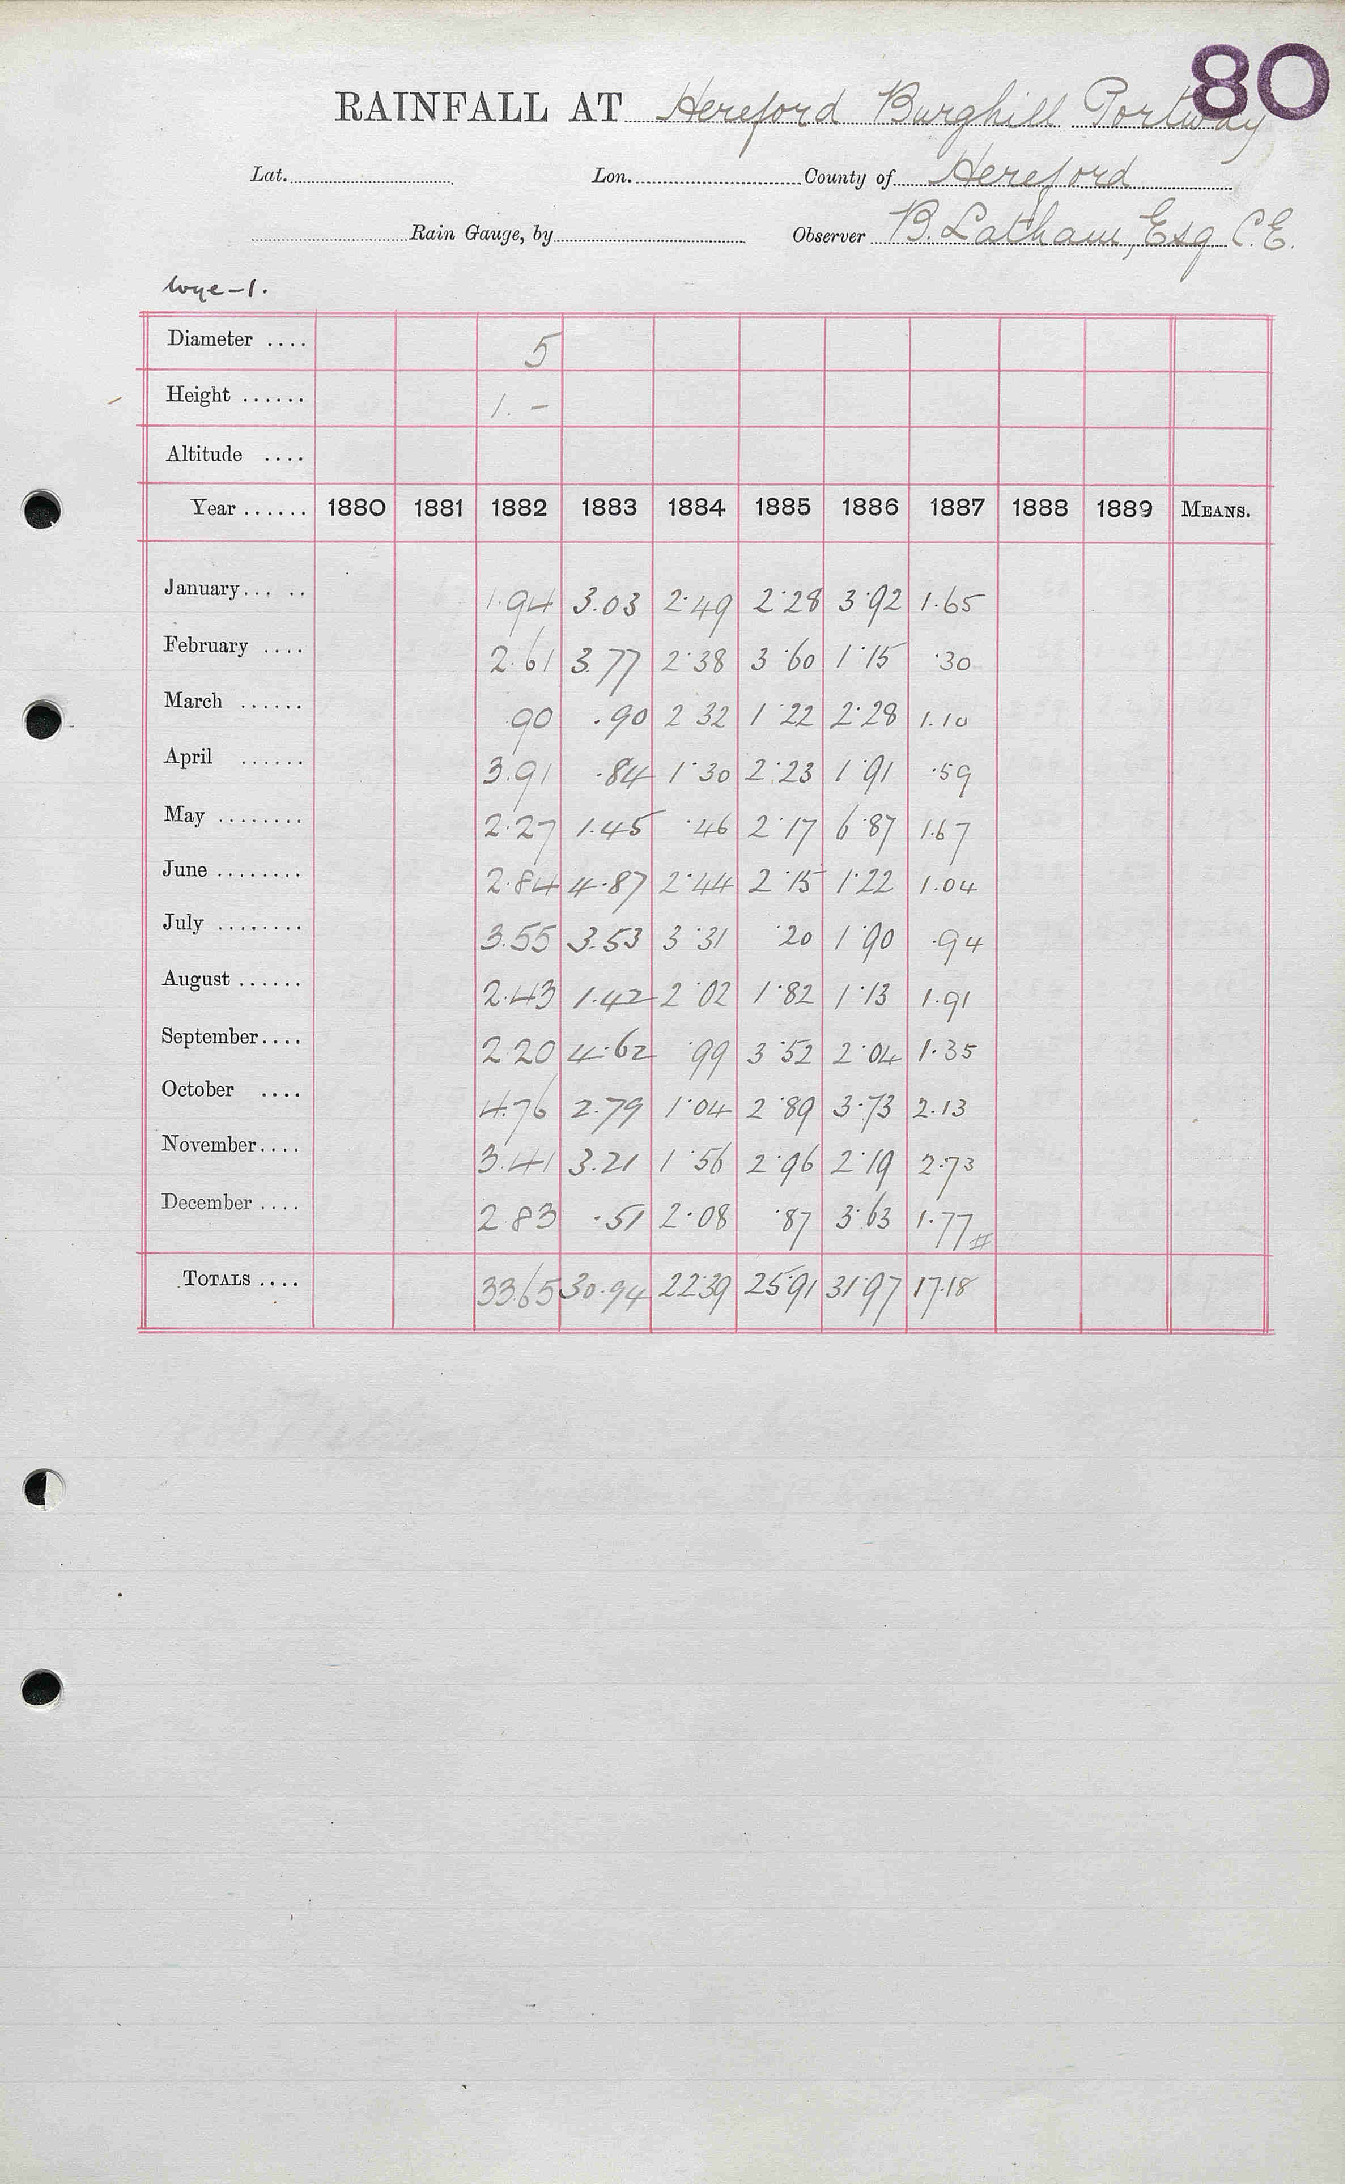 80
RAINFALL AT Hereford Burghill Portway
Lat. Lon. County of Hereford
Rain Gauge, by Observer B. Latham, Esq C.E.
Wye-1.
Diameter .... 5
Height ...... 1. -
Altitude ....
Year ...... 1880 1881 1882 1883 1884 1885 1886 1887 1888 1889 MEANS.
January... .. 1.94 3.03 2.49 2.28 3.92 1.65
February .... 2.61 3.77 2.38 3.60 1.15 .30
March ...... .90 .90 2.32 1.22 2.28 1.10
April ...... 3.91 .84 1.30 2.23 1.91 .59
May ........ 2.27 1.45 .46 2.17 6.87 1.67
June ........ 2.84 4.87 2.44 2.15 1.22 1.04
July ........ 3.55 3.53 3.31 .20 1.90 .94
August ...... 2.43 1.42 2.02 1.82 1.13 1.91
September.... 2.20 4.62 .99 3.52 2.04 1.35
October .... 4.76 2.79 1.04 2.89 3.73 2.13
November.... 3.41 3.21 1.56 2.96 2.19 2.73
December .... 2.83 .51 2.08 .87 3.63 1.77
TOTALS .... 33.65 30.94 22.39 25.91 31.97 17.18